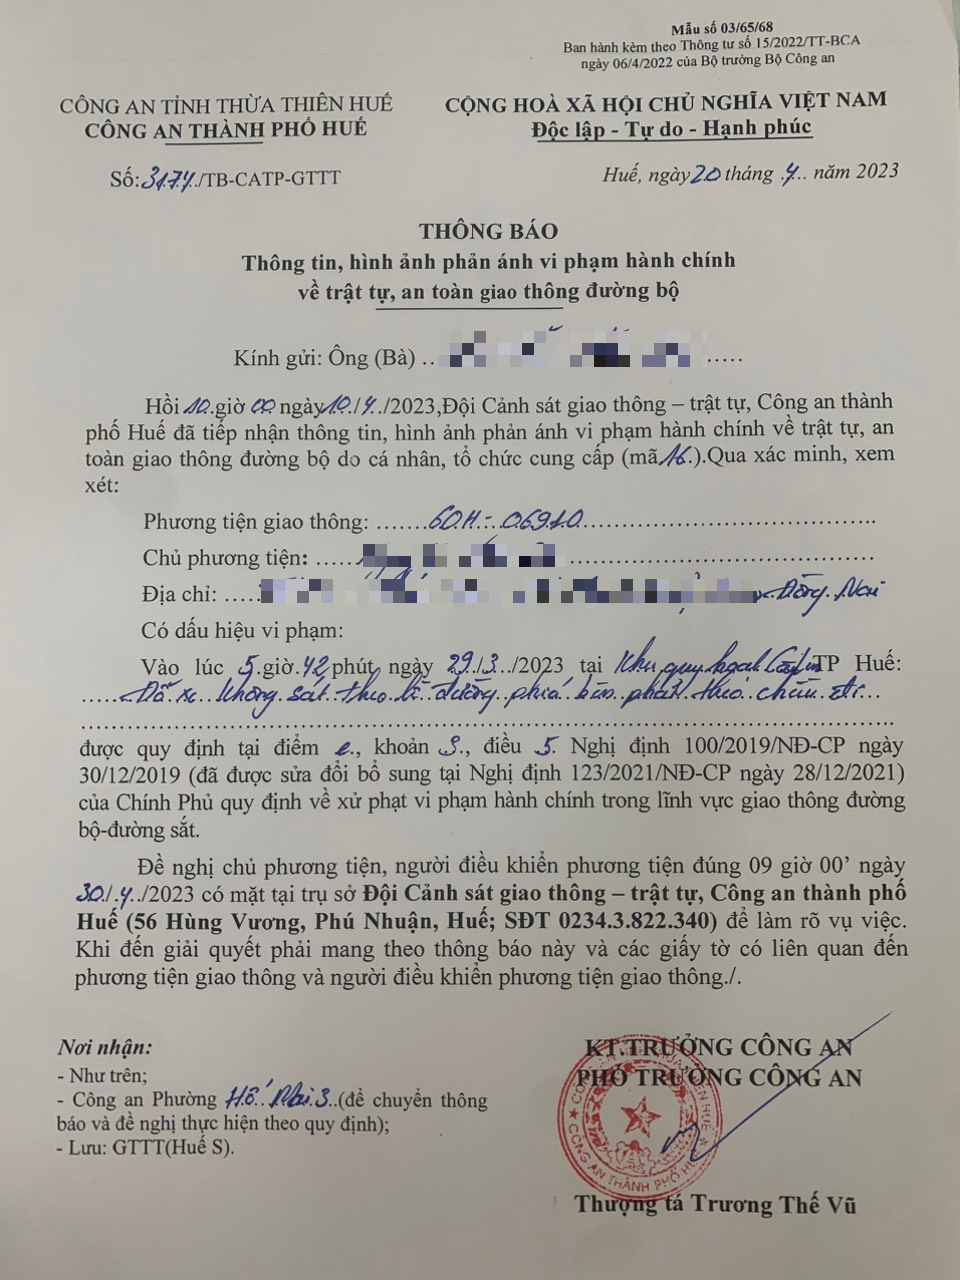 Mẫu số 03/65/68
Ban hành kèm theo Thông tư số 15/2022/TT-BCA
ngày 06/4/2022 của Bộ trưởng Bộ Công an
CÔNG AN TỈNH THỪA THIÊN HUẾ
CÔNG AN THÀNH PHỐ HUẾ
CỘNG HOÀ XÃ HỘI CHỦ NGHĨA VIỆT NAM
Độc lập - Tự do - Hạnh phúc
Số:3174./TB-CATP-GTTT
Huế, ngày 20 tháng .4.. năm 2023
THÔNG BÁO
Thông tin, hình ảnh phản ánh vi phạm hành chính
về trật tự, an toàn giao thông đường bộ
Kính gửi: Ông (Bà) .. .....
Hồi 10.giờ 00 ngày 10./4./2023,Đội Cảnh sát giao thông – trật tự, Công an thành
phố Huế đã tiếp nhận thông tin, hình ảnh phản ánh vi phạm hành chính về trật tự, an
toàn giao thông đường bộ do cá nhân, tổ chức cung cấp (mã 16.).Qua xác minh, xem
xét:
Phương tiện giao thông: .......60H-06910......................................
Chủ phương tiện: ..... .........................................
Địa chỉ: .... Đồng Nai
Có dấu hiệu vi phạm:
Vào lúc 5.giờ.42 phút, ngày 29./3../2023 tại Khu quy hoạch TP Huế:
.....Đỗ xe không sát theo lề đường phía bên phải theo chiều đi...
được quy định tại điểm e., khoản 3., điều 5. Nghị định 100/2019/NĐ-CP ngày
30/12/2019 (đã được sửa đổi bổ sung tại Nghị định 123/2021/NĐ-CP ngày 28/12/2021)
của Chính Phủ quy định về xử phạt vi phạm hành chính trong lĩnh vực giao thông đường
bộ-đường sắt.
Đề nghị chủ phương tiện, người điều khiển phương tiện đúng 09 giờ 00’ ngày
30./.4../2023 có mặt tại trụ sở Đội Cảnh sát giao thông – trật tự, Công an thành phố
Huế (56 Hùng Vương, Phú Nhuận, Huế; SĐT 0234.3.822.340) để làm rõ vụ việc.
Khi đến giải quyết phải mang theo thông báo này và các giấy tờ có liên quan đến
phương tiện giao thông và người điều khiển phương tiện giao thông./.
Nơi nhận:
- Như trên;
- Công an Phường Hố Nai 3..(để chuyển thông
báo và đề nghị thực hiện theo quy định);
- Lưu: GTTT(Huế S).
KT.TRƯỞNG CÔNG AN
PHÓ TRƯỞNG CÔNG AN
CÔNG AN THÀNH PHỐ HUẾ
Thượng tá Trương Thế Vũ